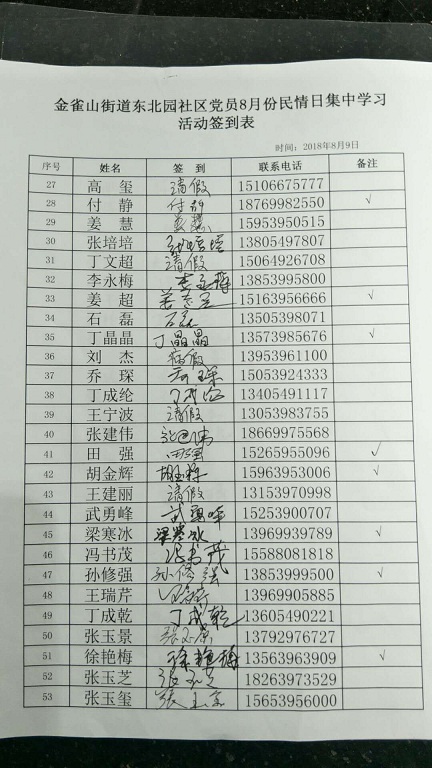 金雀山街道东北园社区党员8月份民情日集中学习
活动签到表
时间：2018年8月9日
序号 姓名 签到 联系电话 备注
27 高玺 请假 15106675777
28 付静 付静 18769982550 √
29 姜慧 姜慧 15953950515
30 张培培 张培培 13805497807
31 丁文超 请假 15064926708
32 李永梅 13853995800
33 姜超 15163956666 √
34 石磊 石磊 13505398071
35 丁晶晶 丁晶晶 13573985676 √
36 刘杰 病假 13953961100
37 乔琛 15053924333
38 丁成纶 13405491117
39 王宁波 请假 13053983755
40 张建伟 18669975568
41 田强 田强 15265955096 √
42 胡金辉 15963953006 √
43 王建丽 请假 13153970998
44 武勇峰 武勇峰 15253900707
45 梁寒冰 梁寒冰 13969939789 √
46 冯书茂 冯书茂 15588081818
47 孙修强 孙修强 13853999500 √
48 王瑞芹 13969905885
49 丁成乾 丁成乾 13605490221
50 张玉景 张玉景 13792976727
51 徐艳梅 徐艳梅 13563963909 √
52 张玉芝 张玉芝 18263973529
53 张玉玺 张玉玺 15653956000